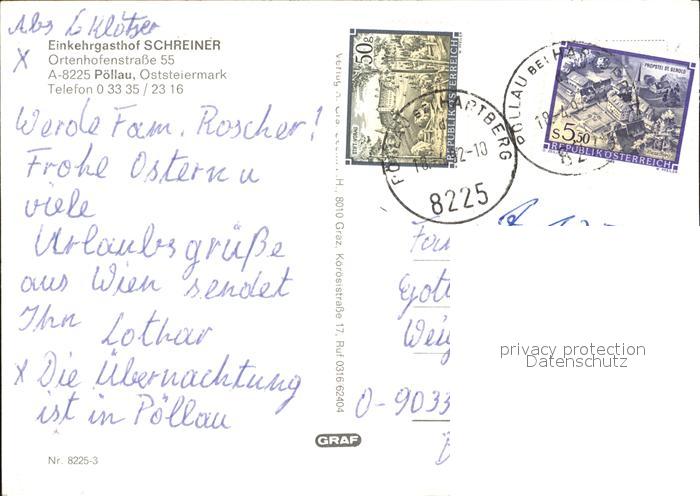 Abs L Klötzer
Einkehrgasthof SCHREINER
Ortenhofenstraße 55
A-8225 Pöllau, Oststeiermark
Telefon 0 33 35 / 23 16
X
Werde Fam. Roscher!
Frohe Ostern u
viele
Urlaubsgrüße
aus Wien sendet
Ihn Lothar
X Die Übernachtung
ist in Pöllau
Nr. 8225-3
8010 Graz, Körösistraße 17, Ruf 0316 62404
GRAF
50g
REPUBLIK ÖSTERREICH
PÖLLAU BEI HARTBERG
8225
PÖLLAU BEI
PROPSTEI ST. GEROLD
S5.50
REPUBLIK ÖSTERREICH
O-9033
privacy protection
Datenschutz